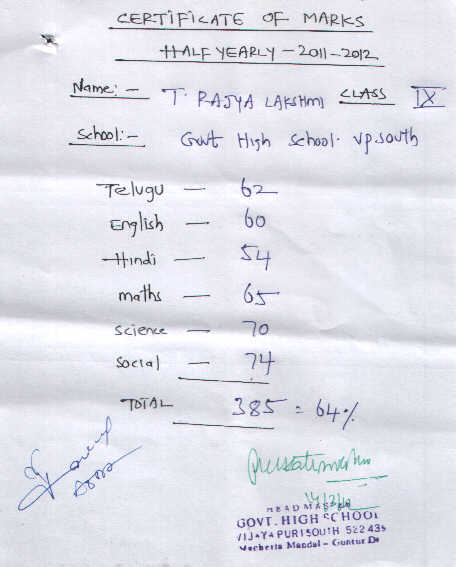 CERTIFICATE OF MARKS
HALF YEARLY - 2011-2012
Name: - T. RAJYA LAKSHMI CLASS IX
School:- Govt High School. V.P.South
Telugu - 62
English - 60
Hindi - 54
maths - 65
science - 70
social - 74
TOTAL 385 = 64%
HEAD MASTER
GOVT. HIGH SCHOOL
VIJAYAPURI SOUTH 522 439
Macherla Mandal - Guntur Dt